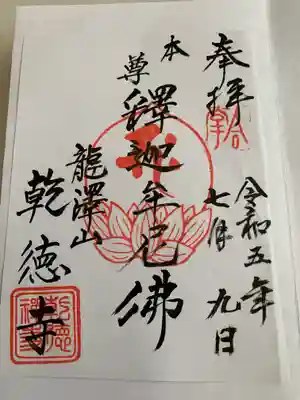 奉拝
令和五年
七月九日
本尊
釋迦牟尼佛
龍澤山
乾徳寺
乾徳禅寺